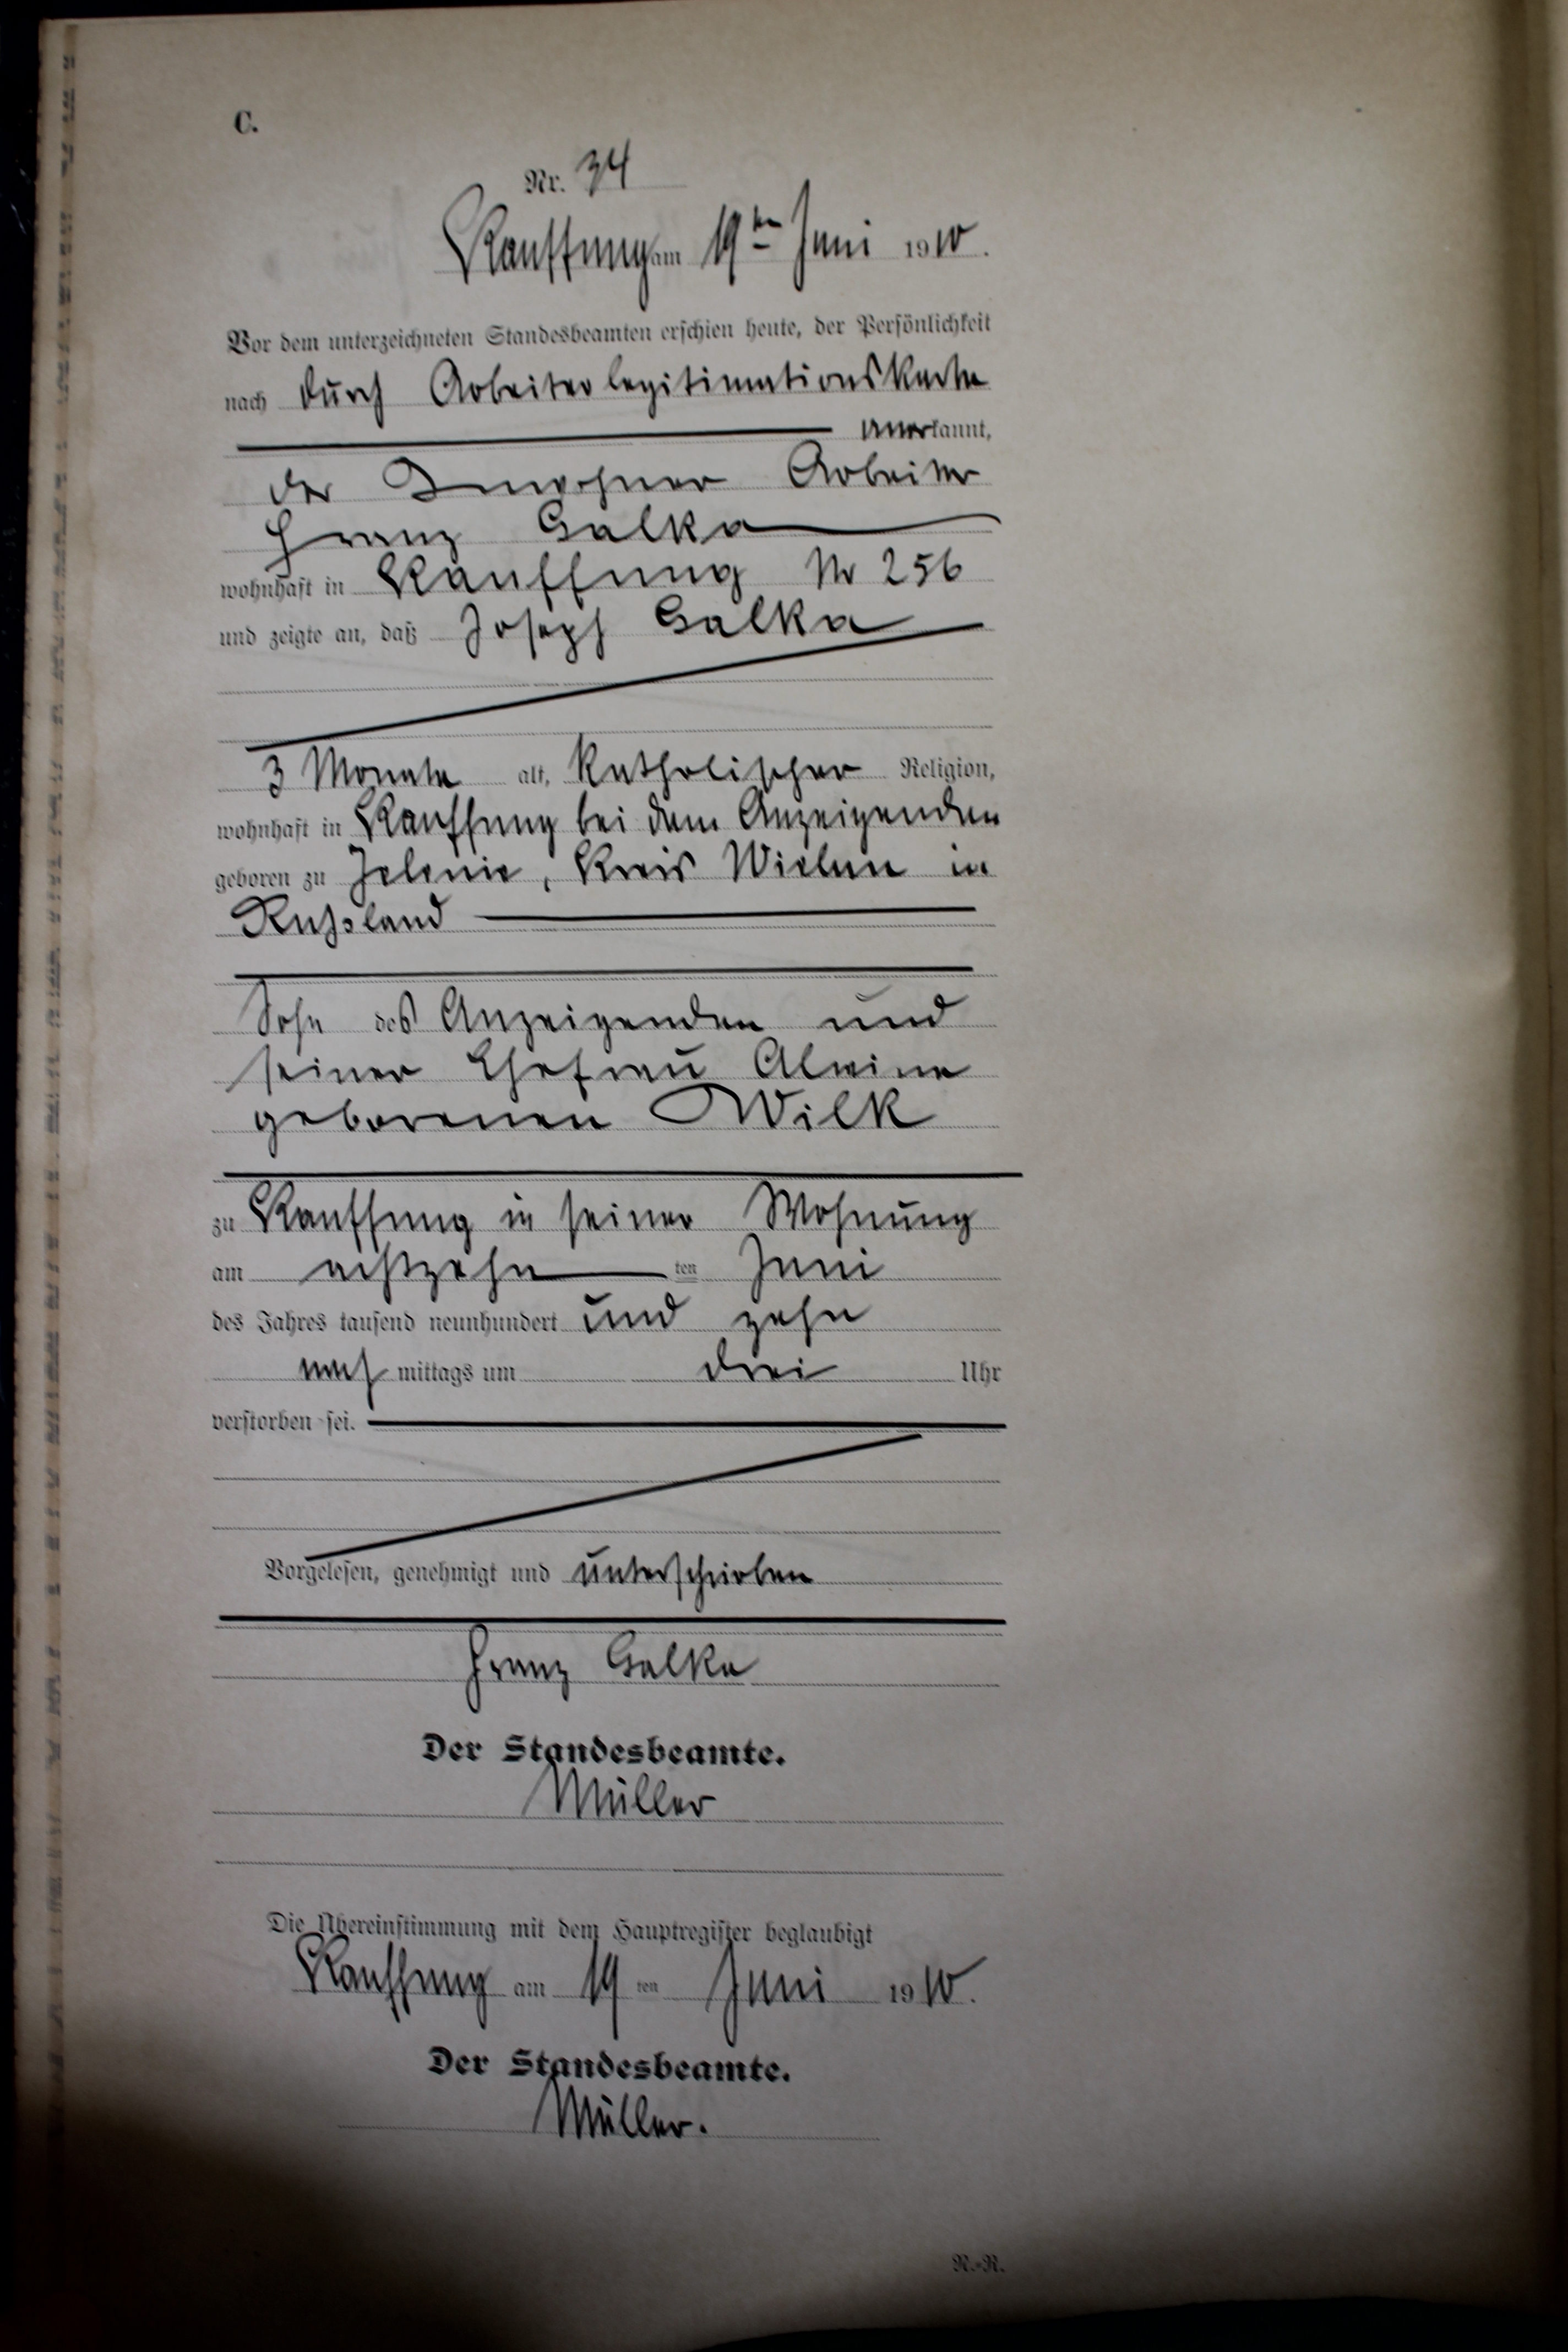 C.
Nr. 34
Kauffung am 19ten Juni 1910.
Vor dem unterzeichneten Standesbeamten erschien heute, der Persönlichkeit
nach durch Arbeiterlegitimationskarte
anerkannt,
der Inwohner Arbeiter
Franz Galka
wohnhaft in Kauffung Nr 256
und zeigte an, daß Joseph Galka
3 Monate alt, katholischer Religion,
wohnhaft in Kauffung bei dem Anzeigenden
geboren zu Jelonie, Kreis Wielun in
Russland
Sohn des Anzeigenden und
seiner Ehefrau Alwine
geborenen Wilk
zu Kauffung in seiner Wohnung
am achtzehn ten Juni
des Jahres tausend neunhundert und zehn
nachmittags um drei Uhr
verstorben sei.
Vorgelesen, genehmigt und unterschrieben
Franz Galka
Der Standesbeamte.
Müller
Die Übereinstimmung mit dem Hauptregister beglaubigt
Kauffung am 19 ten Juni 1910.
Der Standesbeamte.
Müller.
R.-R.